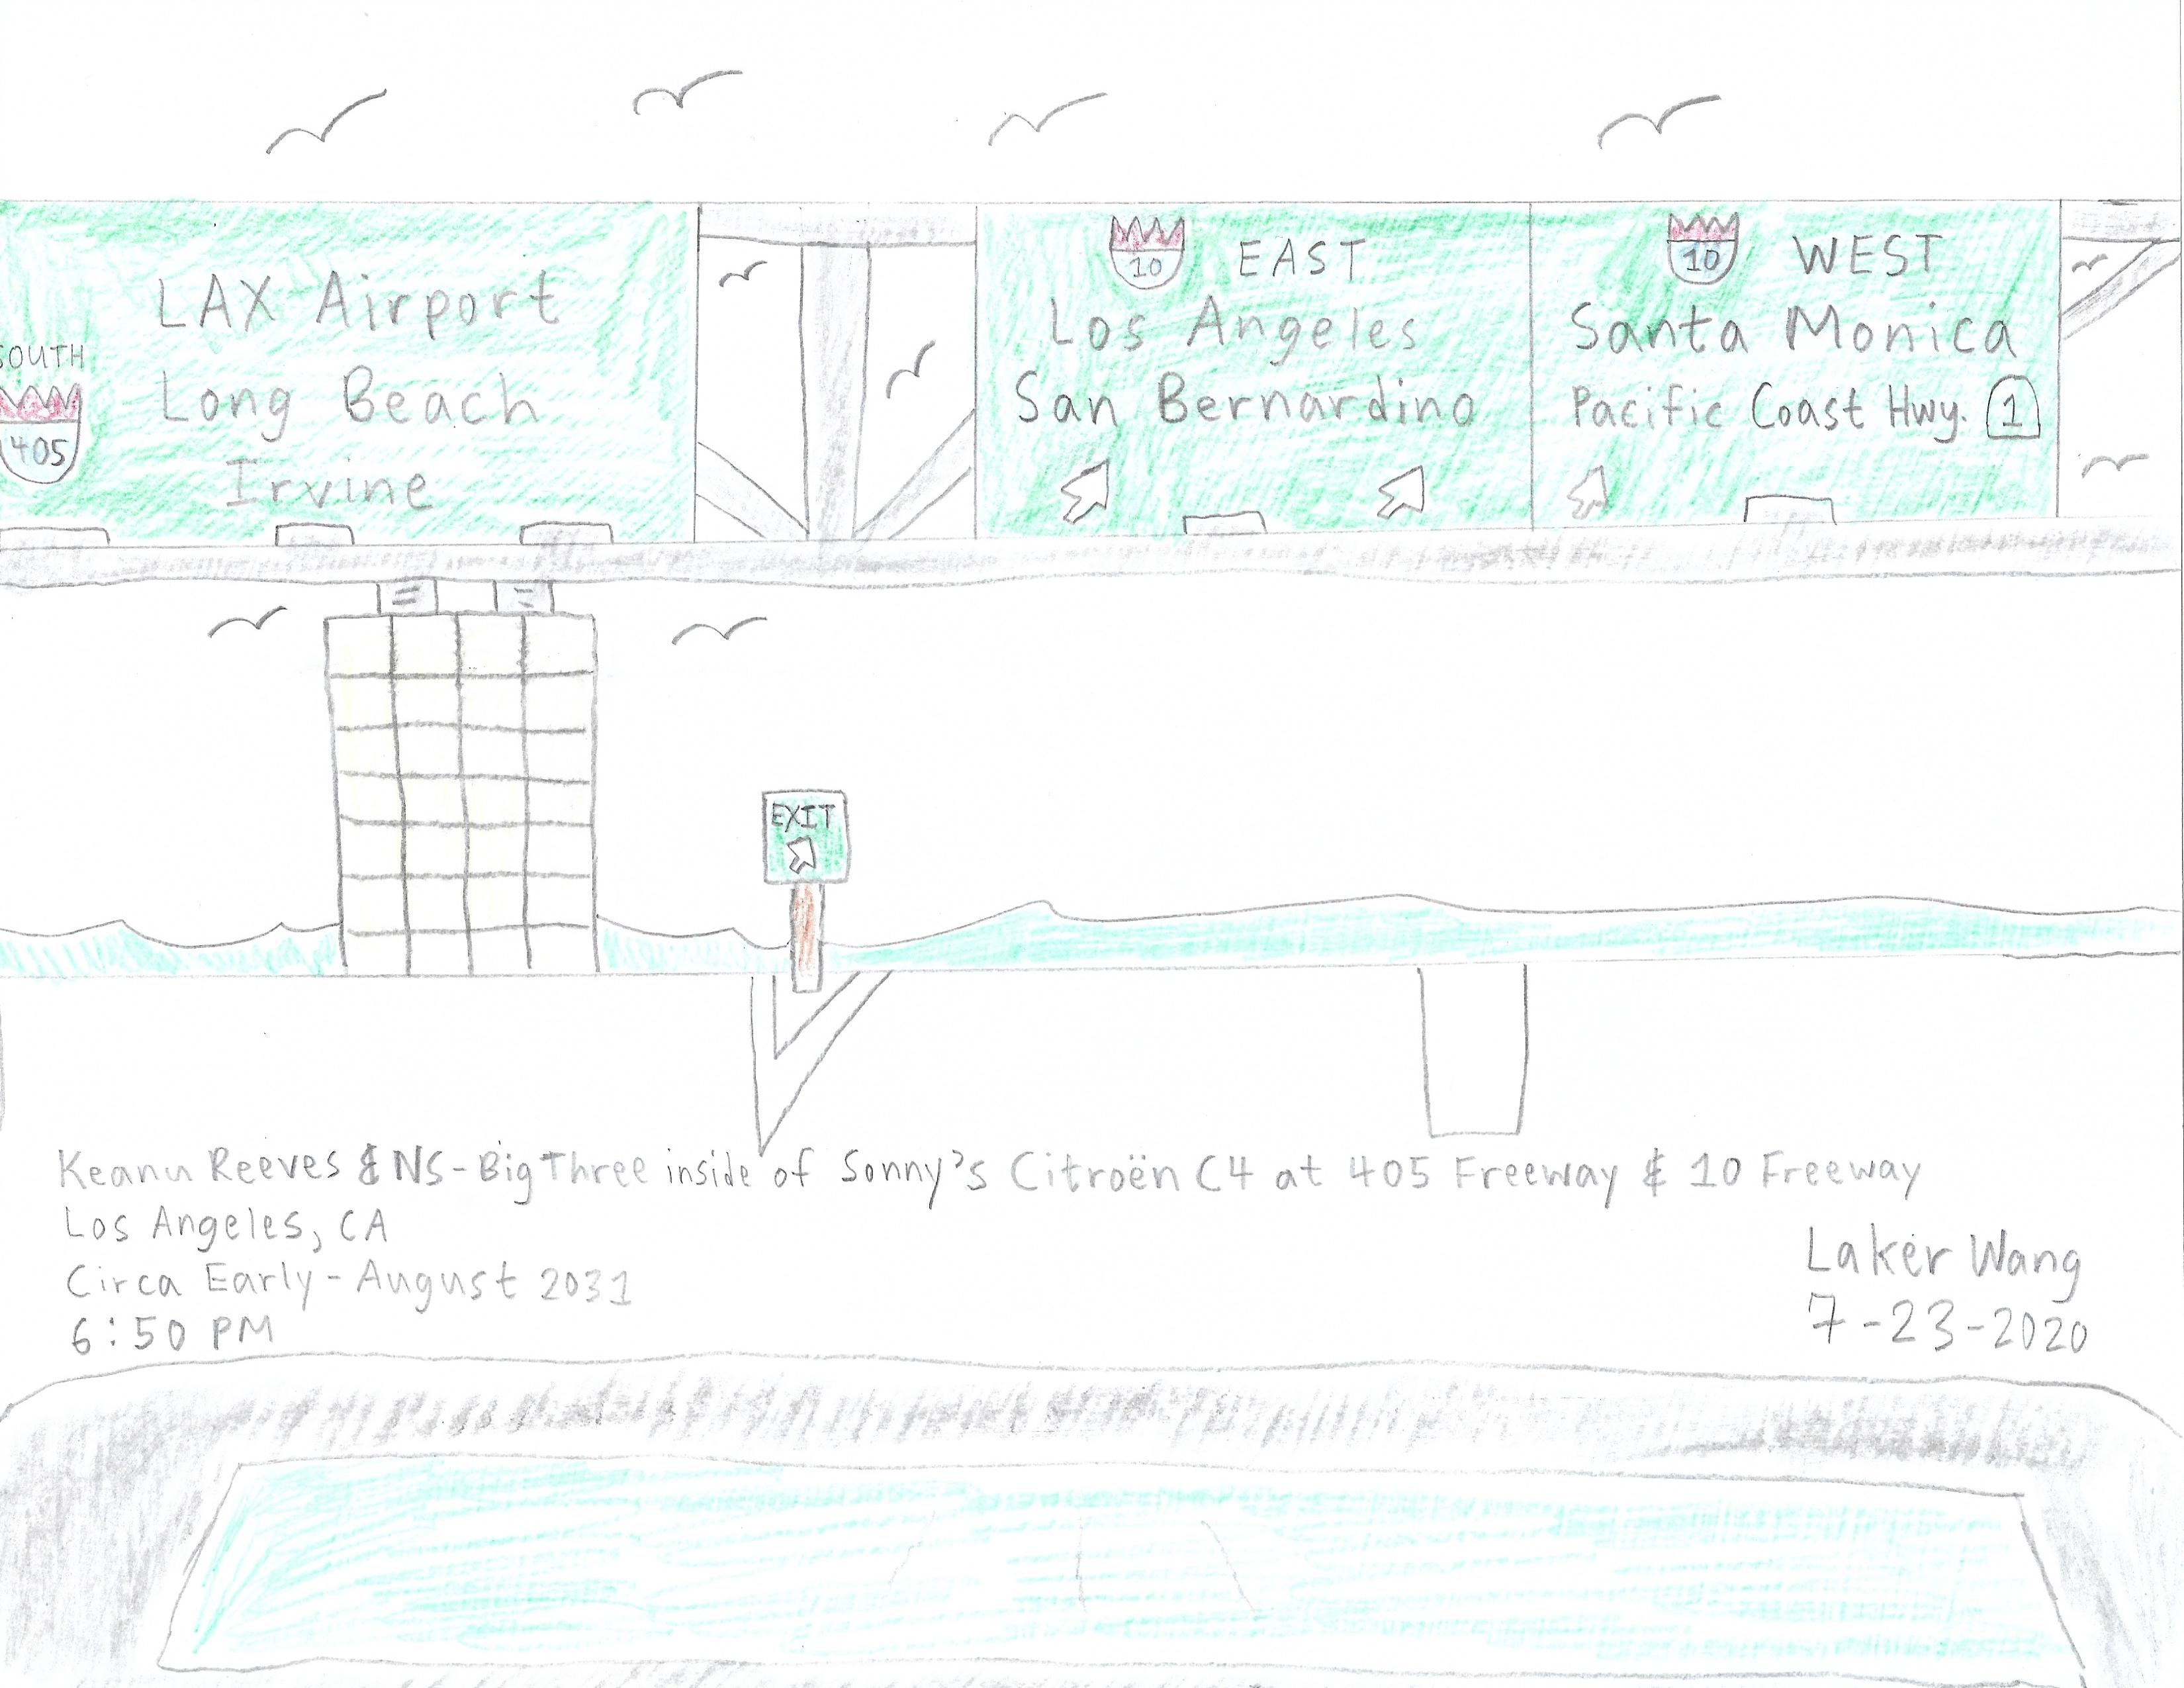 LAX Airport
Long Beach
Irvine
SOUTH
405
10 EAST
Los Angeles
San Bernardino
10 WEST
Santa Monica
Pacific Coast Hwy. 1
EXIT
Keanu Reeves & NS-Big Three inside of Sonny's Citroën C4 at 405 Freeway & 10 Freeway
Los Angeles, CA
Circa Early-August 2031
6:50 PM
Laker Wang
7-23-2020